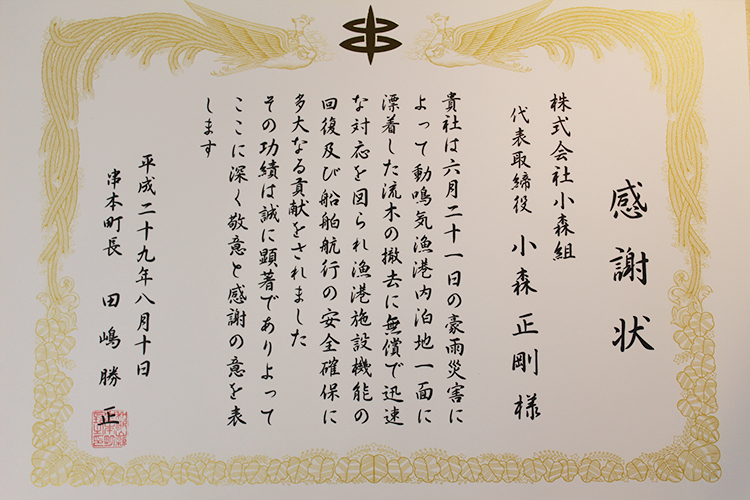 感謝状
株式会社小森組
代表取締役 小森正剛様
貴社は六月二十一日の豪雨災害に
よって動鳴気漁港内泊地一面に
漂着した流木の撤去に無償で迅速
な対応を図られ漁港施設機能の
回復及び船舶航行の安全確保に
多大なる貢献をされました
その功績は誠に顕著でありよって
ここに深く敬意と感謝の意を表
します
平成二十九年八月十日
串本町長 田嶋勝正